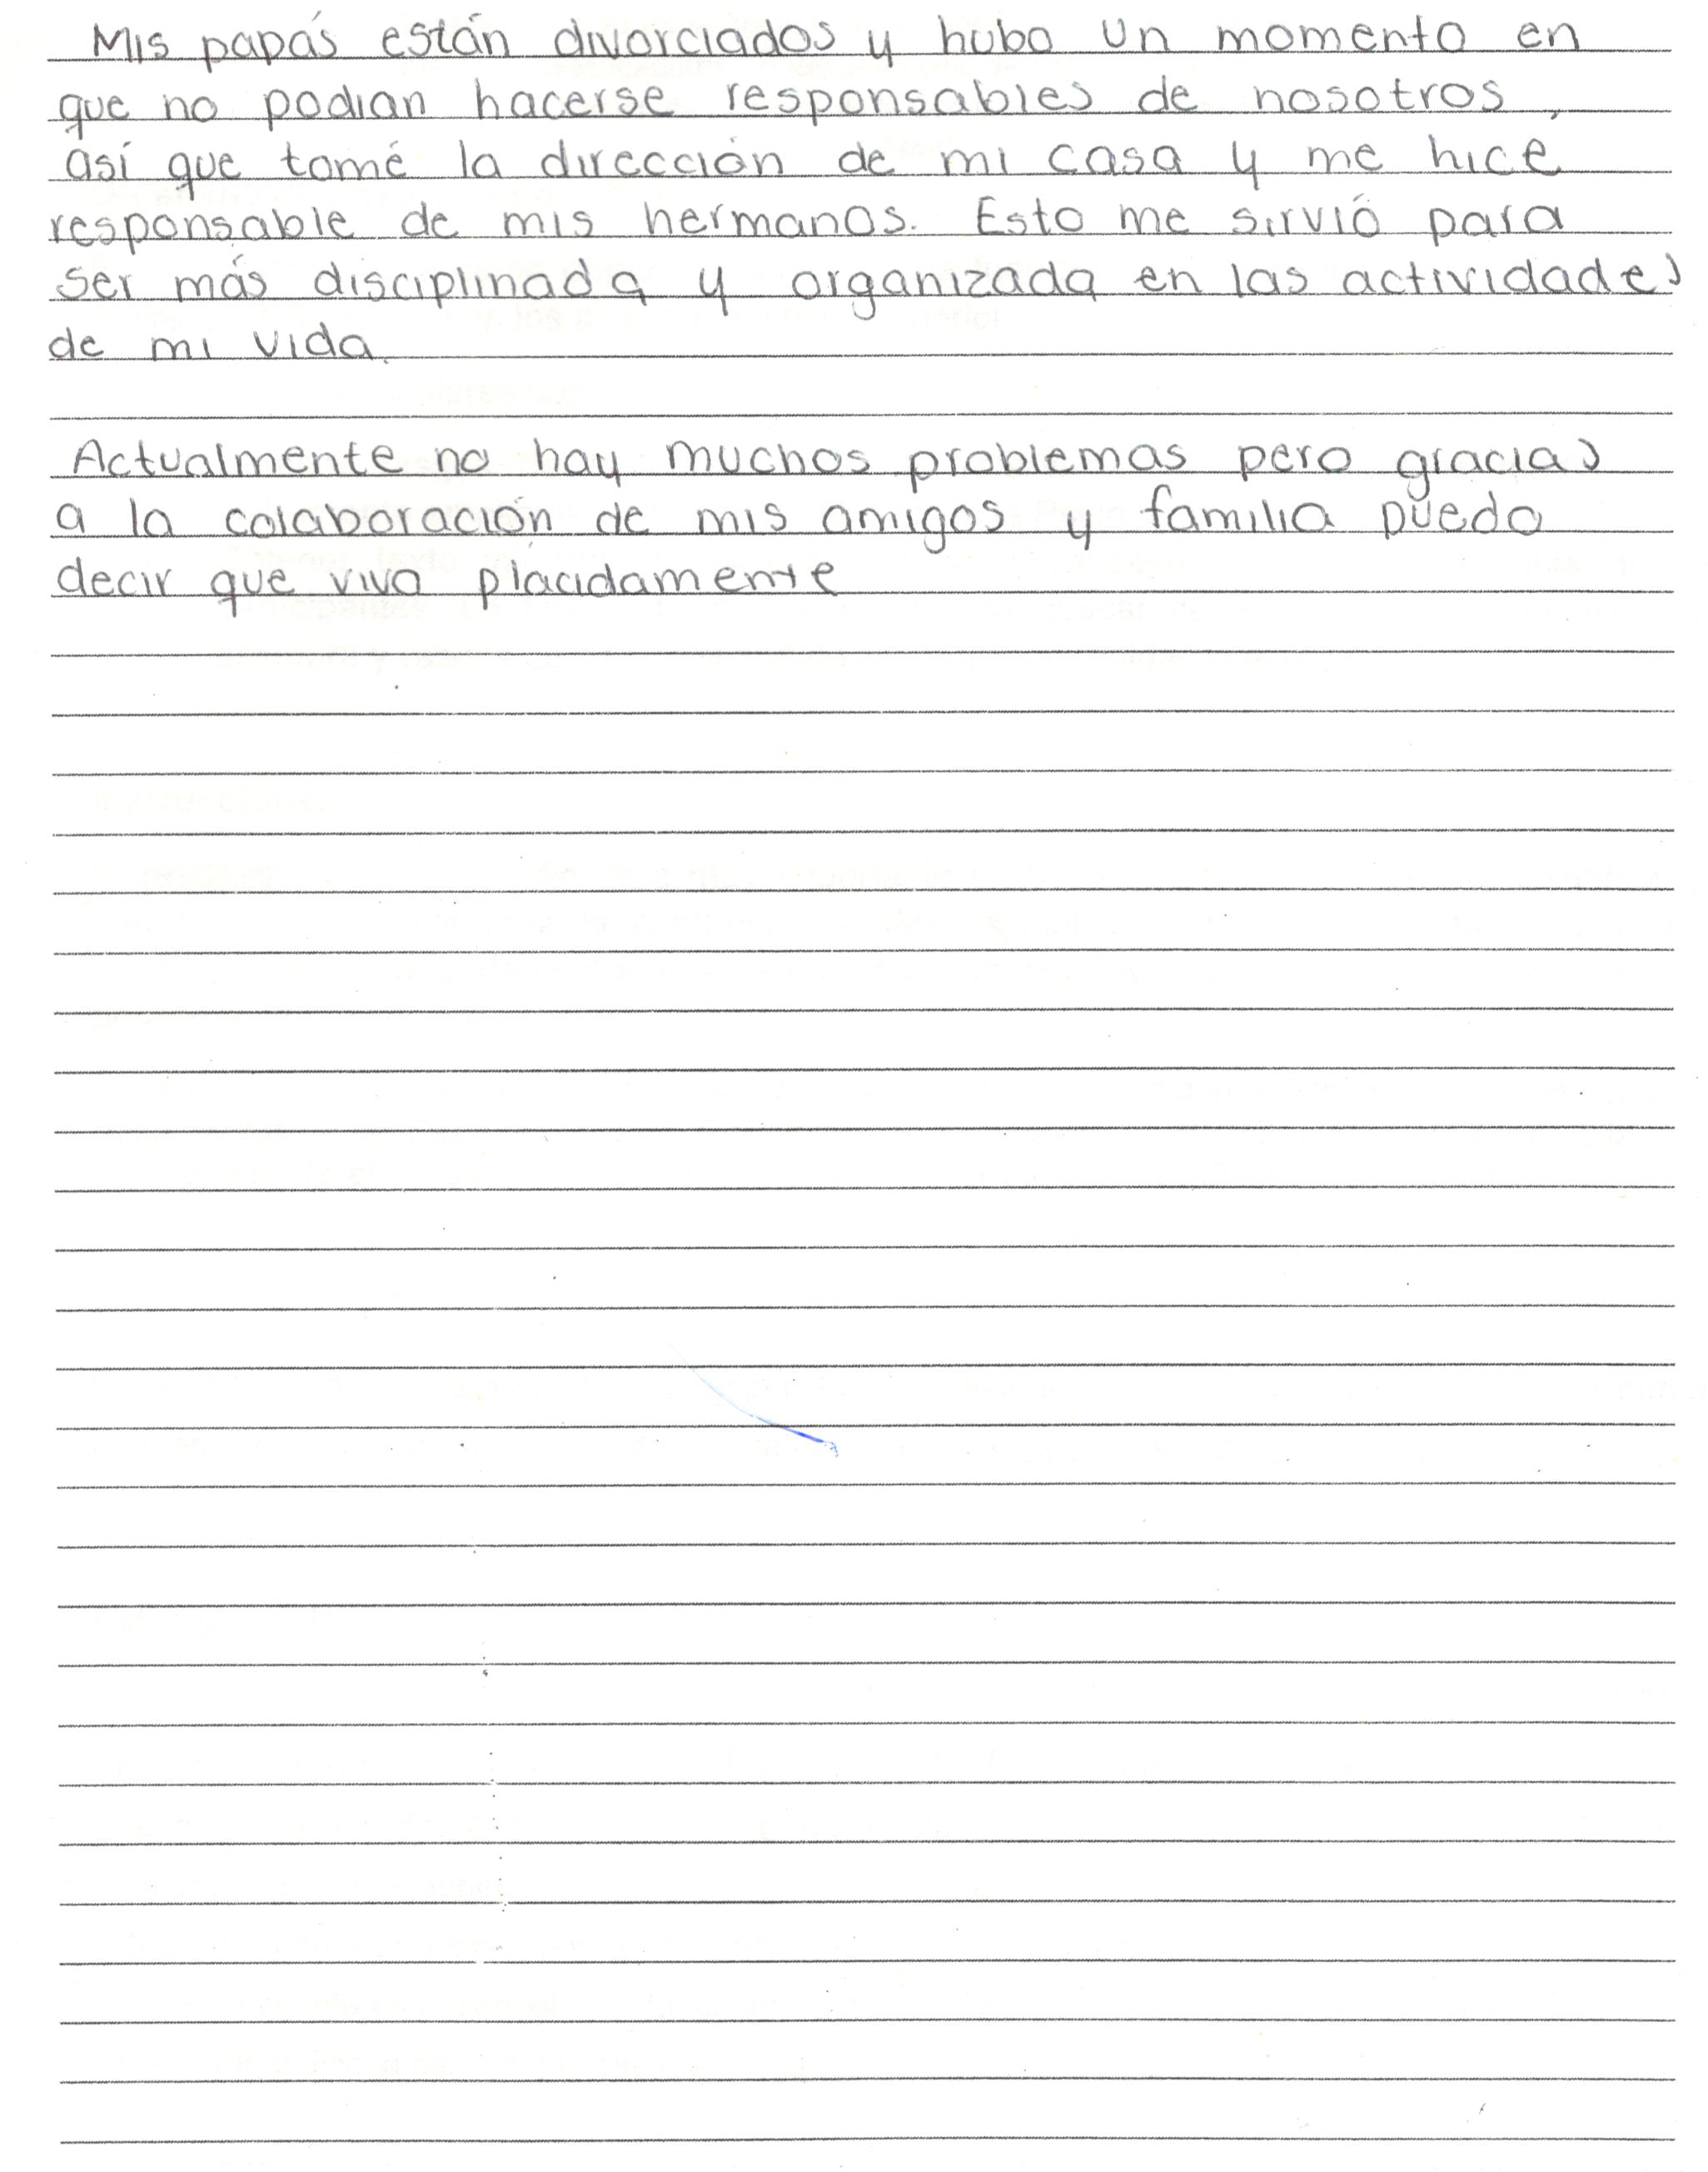 Mis papás están divorciados y hubo un momento en
que no podian hacerse responsables de nosotros,
así que tomé la dirección de mi casa y me hice
responsable de mis hermanos. Esto me sirvió para
ser más disciplinada y organizada en las actividades
de mi vida.
Actualmente no hay muchos problemas pero gracias
a la colaboración de mis amigos y familia puedo
decir que vivo plácidamente